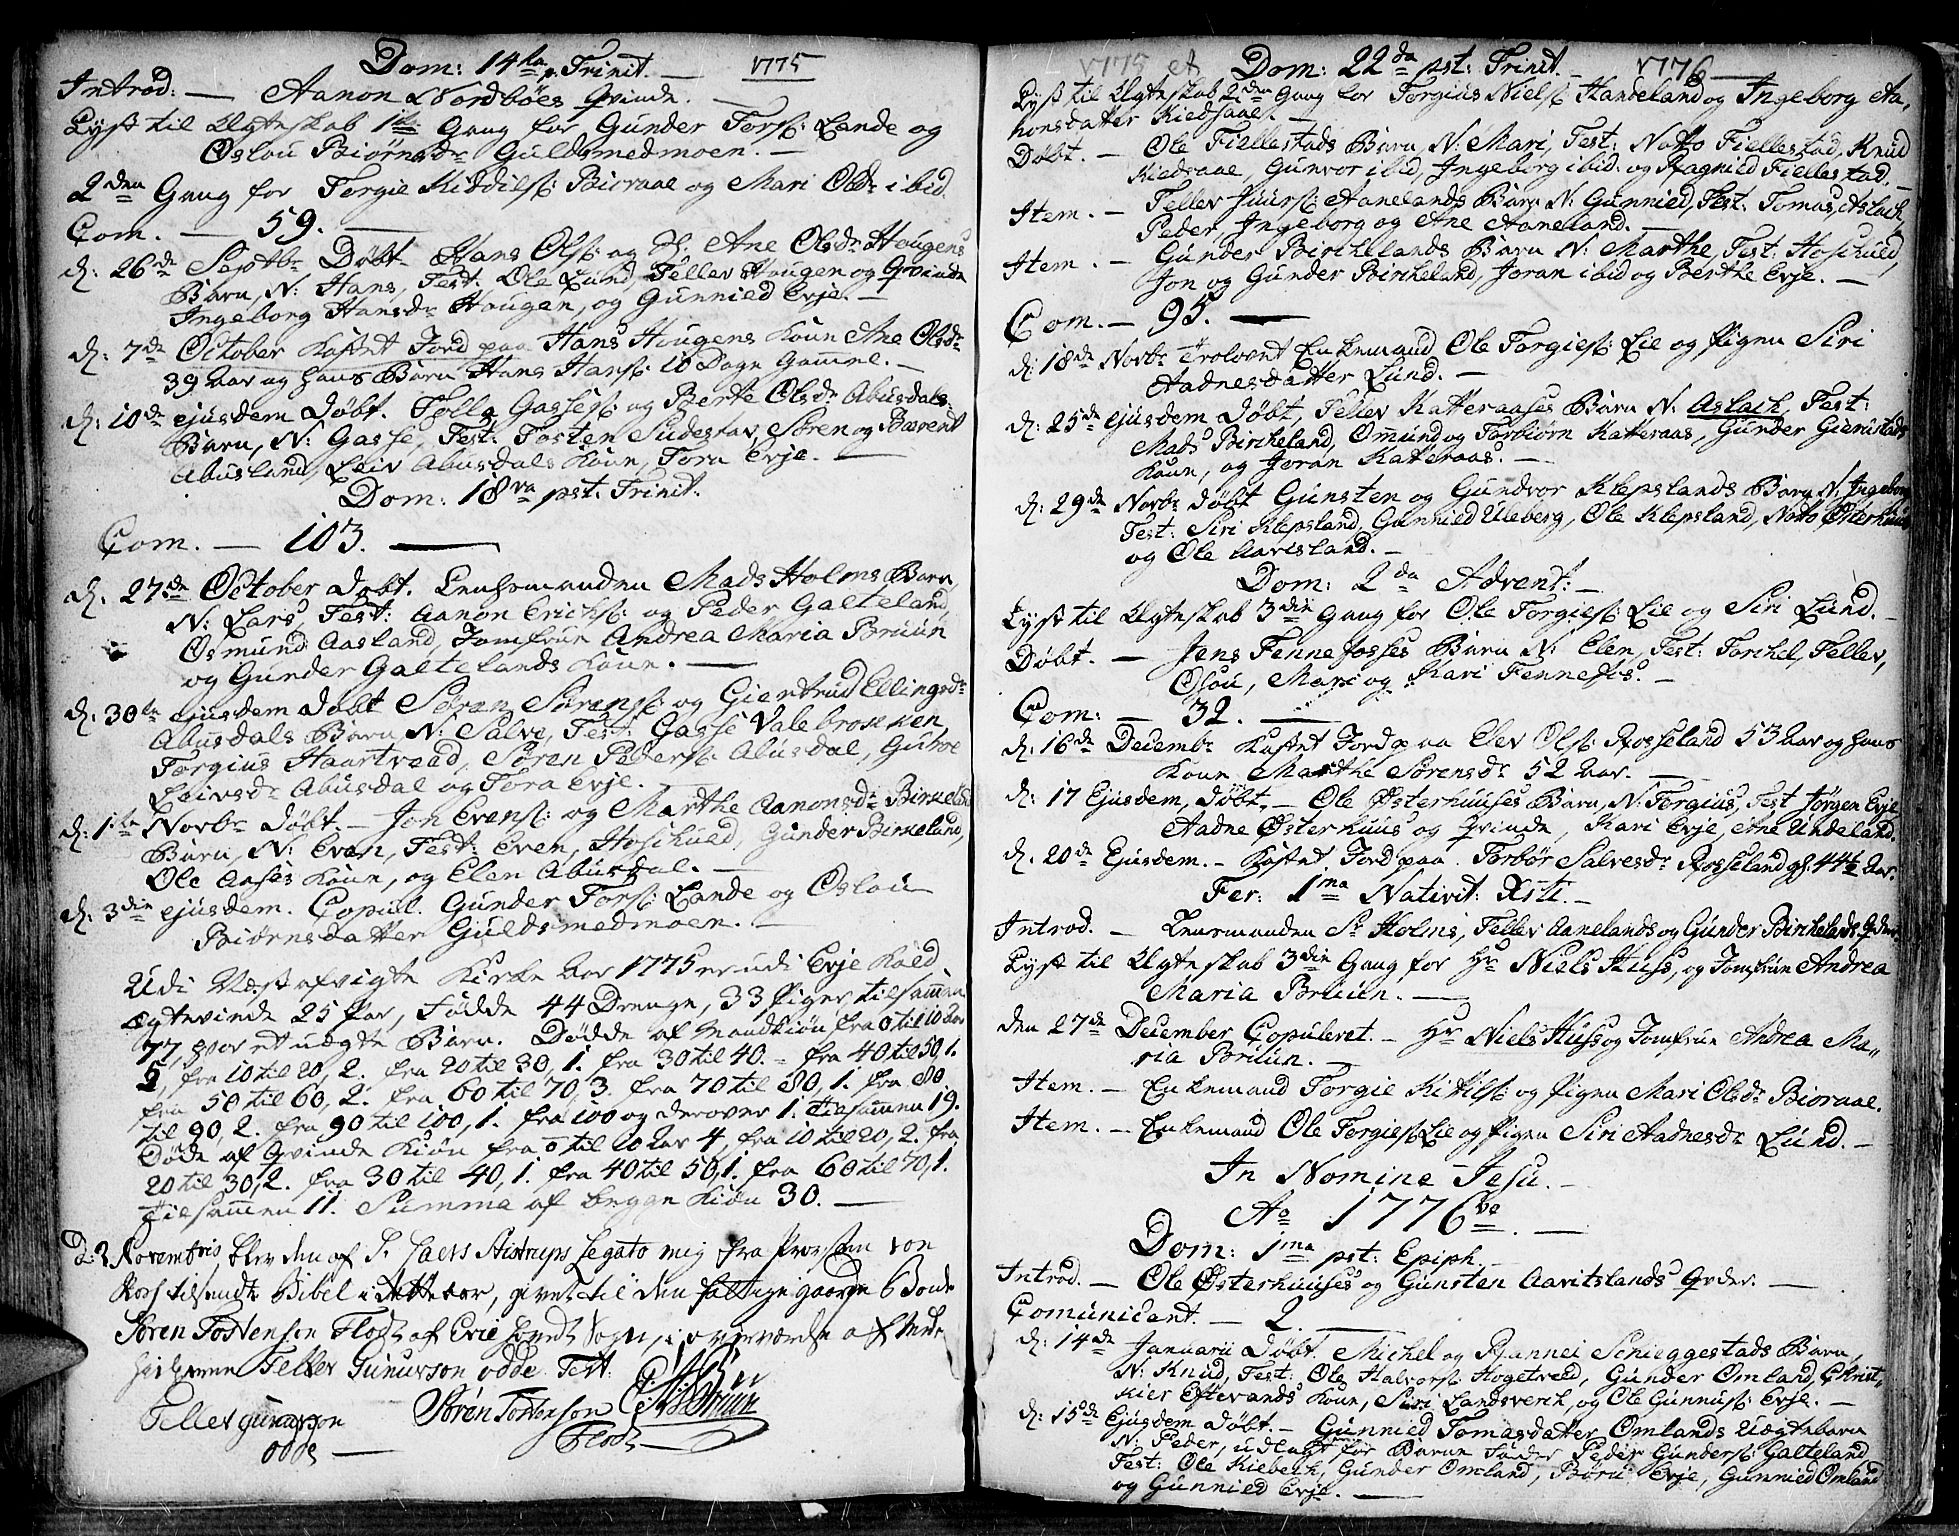 Dom: 14de p. Trinit. — 1775
Introd: — Aanon Nordböes Qvinde. —
Lyst til Ægteskab 1ste Gang for Gunder Torsß: Lande og
Oslou Biörnsdr Guldsmedmoen. —
2den Gang for Torgie Kiddilsß: Bioraae og Mari Olsdr ibid.
Com. — 59. —
d: 26de Septbr Döbt Hans Olsß: og H. Ane Olsdr Hougens
Barn, N: Hans, Test: Ole Lund, Tellev Hougen og Qvinde
Ingeborg Hansdr Hougen, og Gunnied Evje. —
d: 7de October Kastet Jord paa Hans Hougens Kone Ane Olsdr
39 Aar og hans Barn Hans Hansß: 10 Dage Gammel. —
d: 10de ejusdem Döbt. Tolle Gasseß: og Berte Olsdr Abusdals
Barn, N: Gasse, Test: Tosten Sudestav, Sören og Bærent
Abusland, Leiv Abusdals Kone, Tora Evje. —
Dom: 18va pst: Trinit:
Com. — 103. —
d: 27de October Döbt. Lensmanden Mads Holms Barn,
N: Lars, Test: Aanon Erichsß: og Peder Galteland,
Osmund Aasland, Jomfrue Andrea Maria Bruun
og Gunder Galtelands Kone. —
d: 30te ejusdem Döbt Sören Sörensß: og Giertrud Ellingsdr
Abusdals Barn N: Salve, Test: Gasse Valebrokken
Torgius Haartveed, Sören Pedersß: Abusdal, Guroe
Leivsdr Abusdal og Tora Evje. —
d: 1ste Novbr Döbt. — Jon Evensß: og Marthe Aanonsdr Birkeland
Barn, N: Even, Test: Even, Hoschuld, Gunder Birkeland,
Ole Aases Kone, og Elen Abusdal. —
d: 3die ejusdem. Copul. Gunder Torsß: Lande og Oslou
Biörnsdatter Guldsmedmoen. —
Udi Næst afvigte Kirke Aar 1775 er udi Evje Kald
Ægtevinde 25 Par, Fødde 44 Drenge, 33 Piger, tilsammen
77, hvor et uægte Barn. Dödde af Mandkiön fra 0 til 10 Aar
5, fra 10 til 20, 2. fra 20 til 30, 1. fra 30 til 40. - fra 40 til 50, 1.
fra 50 til 60, 2. fra 60 til 70, 3. fra 70 til 80, 1. fra 80
til 90, 2. fra 90 til 100, 1. fra 100 og derover 1. tilsammen 19.
Döde af Qvinde Kiön fra 0 til 10 Aar 4, fra 10 til 20, 2. fra
20 til 30, 2. fra 30 til 40, 1. fra 40 til 50, 1. fra 60 til 70, 1.
tilsammen 11. Summa af begge Kiön 30. —
d: 3 Novembris, blev den af Sr Laers Aistrups Legato mig fra Provsten von
Koss tilsendte Bibel i dette aar, givet til den fattige gaarde Bonde
Sören Tostensen Flodz af Evje Hoved Sogn, i overværelse af Mede
hielperen Tellev Gunnersøn odde Test:
Tellev gunnersøn Sören Tostensøn
odde Flodz —
1775 et Dom: 22da pst: Trinit. — 1776 —
Lyst til Ægteskab 2den Gang for Torgius Nielsß: Handeland og Ingeborg Aa,
nonsdatter Kiedsaaes. —
Döbt. — Ole Fiellestads Barn, N: Mari, Test: Notto Fiellestad, Knud
Kiedsaae, Gunvor ibid, Ingeborg ibid: og Ragnied Fiellestad. —
Item. — Tellev Siursß: Aanelands Barn N: Gunnied, Test: Tomas, Aslach,
Peder, Ingeborg og Ane Aaneland. —
Item. — Gunder Birchelands Barn N: Marthe, Test: Hoschuld,
Jon og Gunder Bircheland, Joran ibid og Berthe Evje. —
Com. — 95. —
d: 18de Novbr Trolovet Enkemand Ole Torgiesß: Lie og Pigen Siri
Aadnesdatter Lund. —
d: 25de ejusdem Döbt, Tellev Katteraases Barn N: Aslach, Test:
Mads Bircheland, Ommund og Torbiörn Katteraas, Gunder Gierustads
Kone, og Joran Katteraas. —
d: 29de Novbr Döbt Gunsten og Gundvor Klepslands Barn N: Ingeborg
Test: Siri Klepsland, Gunnied Uleberg, Ole Klepsland, Notto Österhuus
og Ole Aarisland. —
Dom: 2da Advent: —
Lyst til Ægteskab 3die Gang for Ole Torgiesß: Lie og Siri Lund. —
Döbt. — Jens Fennefosses Barn N: Elen, Test: Torchel, Tellev,
Oslou, Mari og Kari Fennefos. —
Com: — 32. —
d: 16de Decembr Kastet Jord paa Elev Olsß: Rosseland 53 Aar og hans
Kone Marthe Sörensdr 52 Aar. —
d: 17 Ejusdem, Döbt. — Ole Østerhuuses Barn, N: Torgius, Test Jörgen Evje,
Aadne Østerhuus og Qvinde, Kari Evje, Ane Undeland.
d: 20de Ejusdem. — Kastet Jord paa Torbör Salvesdr Rosseland gl: 44½ Aar.
Fer: 1ma Nativit: Xsti. —
Introd. — Lensmanden Sr Holms, Tellev Aanelands og Gunder Birchelands Qvder.
Lyst til Ægteskab 3die Gang for Hr Niels Huss, og Jomfrue Andrea
Maria Bruun. —
den 27de December Copuleret. — Hr Niels Huss og Jomfrue Andrea Ma-
ria Bruun. —
Item. — Enkemand Torgie Kitilsß: og Pigen Mari Olsdr Bioraae.
Item. — Enkemand Ole Torgiesß: Lie og Pigen Siri Aadnesdr Lund. —
In Nomine Jesu. —
Ao 1776 —
Dom: 1ma pst: Epiph. —
Introd. — Ole Østerhuuses og Gunsten Aaritslands Qvder. —
Comunicant. — 2. —
d: 14de Januarii Döbt. Michel og Rannei Schieggestads Barn,
N: Knud, Test: Ole Halvorsß: Hogetveed, Gunder Omland, Christ,
Kier Eftevands Kone, Siri Landsverk, og Ole Gunnusß: Evje. —
d: 15de Ejusdem Döbt. — Gunnied Tomasdatter Omlands Uægte Barn
N: Peder, udlagt for Barne Fader Peder Gundersß: Galteland,
Test: Ole Kiebech, Gunder Omland, Böru Evje, Gunnied Omland
og Gunnied Evje. —